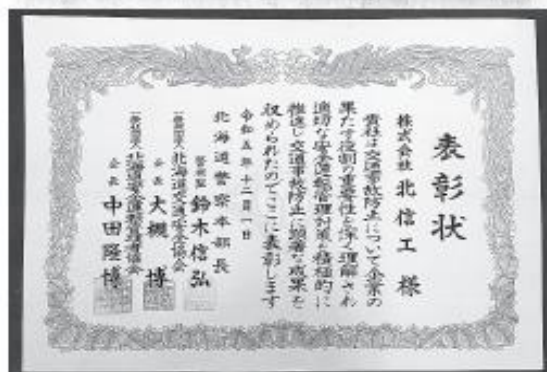 表彰状
株式会社 北信工 様
貴社は交通事故防止について企業の
果たす役割の重要性を深く理解され
適切な安全運転管理対策を積極的に
推進し交通事故防止に顕著な成果を
収められたのでここに表彰します
令和五年十二月一日
北海道警察本部長
警視監 鈴木信弘
一般社団法人北海道交通安全協会
会長 大槻 博
一般社団法人北海道安全運転管理者協会
会長 中田隆博